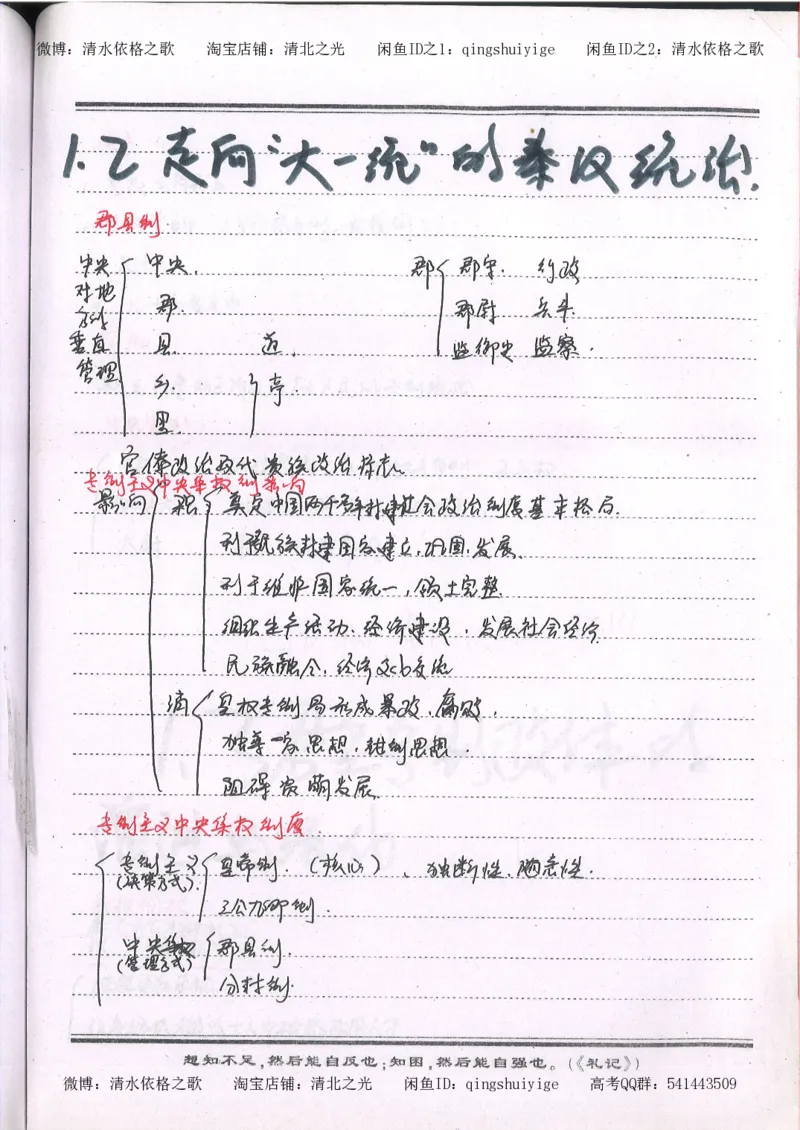 微博：清水依格之歌 淘宝店铺：清北之光 闲鱼ID之1：qingshuiyige 闲鱼ID之2：清水依格之歌
1.2 走向“大一统”的秦汉统治.
郡县制
中央对地方的垂直管理
中央.
郡
县. 道.
乡. 亭.
里.
郡 郡守. 行政
郡尉 兵斗.
监御史 监察.
官僚政治取代贵族政治标志.
专制主义中央集权制影响
影响 积 奠定中国两千多年封建社会政治制度基本格局.
利于多民族封建国家建立,巩固,发展.
利于维护国家统一,领土完整
组织生产活动、经济建设,发展社会经济.
民族融合,经济文化交流
消 皇权专制易形成暴政、腐败.
独尊一家思想,钳制思想.
阻碍资萌发展.
专制主义中央集权制度.
专制主义(决策方式) 皇帝制.(核心)、独断性、随意性.
三公九卿制.
中央集权(管理方式) 郡县制.
分封制.
知不足,然后能自反也;知困,然后能自强也。(《礼记》)
微博：清水依格之歌 淘宝店铺：清北之光 闲鱼ID：qingshuiyige 高考QQ群：541443509